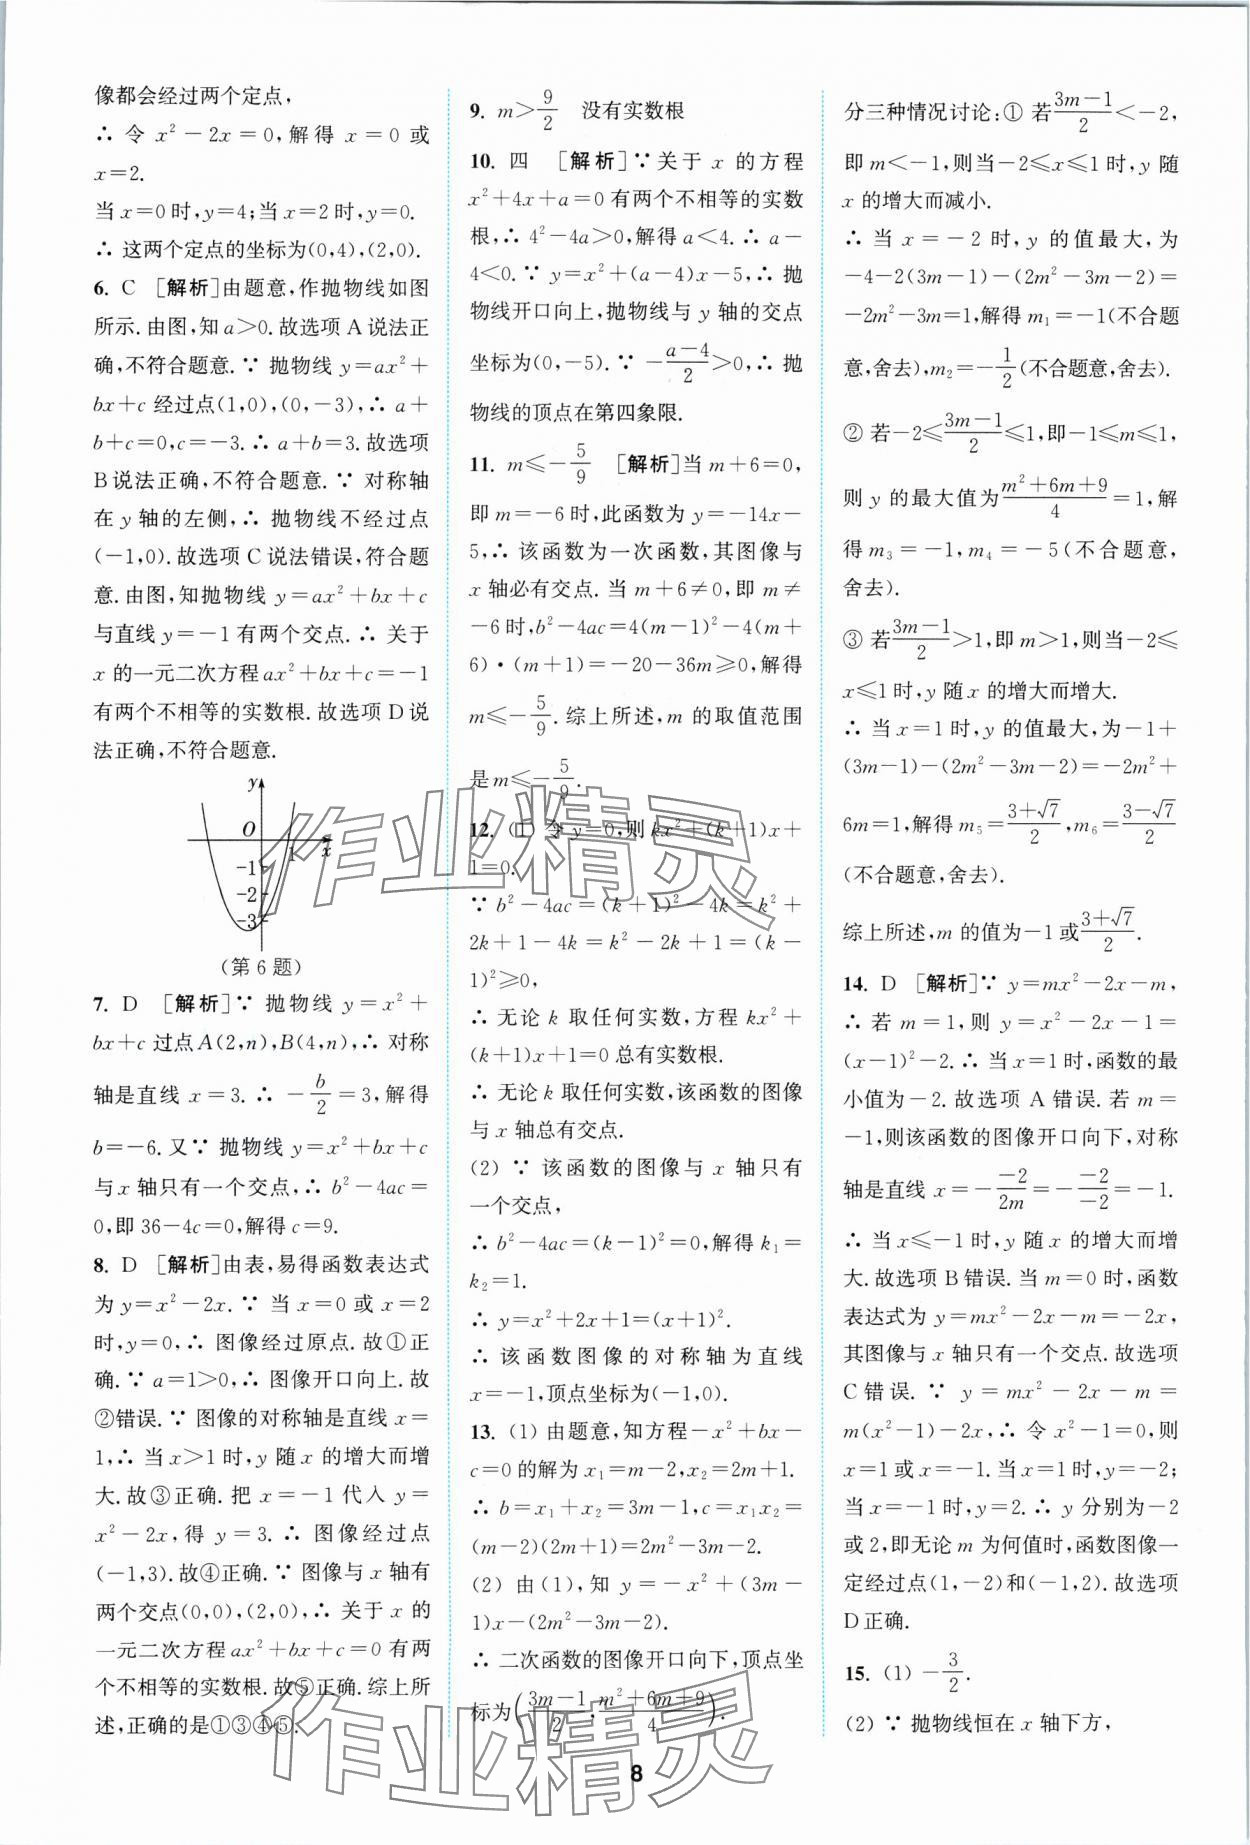 像都会经过两个定点,
∴ 令 x²－2x＝0,解得 x＝0 或
x＝2.
当 x＝0 时,y＝4;当 x＝2 时,y＝0.
∴ 这两个定点的坐标为(0,4),(2,0).
6. C [解析]由题意,作抛物线如图
所示.由图,知 a＞0.故选项 A 说法正
确,不符合题意.∵ 抛物线 y＝ax²＋
bx＋c 经过点(1,0),(0,－3),∴ a＋
b＋c＝0,c＝－3.∴ a＋b＝3.故选项
B 说法正确,不符合题意.∵ 对称轴
在 y 轴的左侧,∴ 抛物线不经过点
(－1,0).故选项 C 说法错误,符合题
意.由图,知抛物线 y＝ax²＋bx＋c
与直线 y＝－1 有两个交点.∴ 关于
x 的一元二次方程 ax²＋bx＋c＝－1
有两个不相等的实数根.故选项 D 说
法正确,不符合题意.
y
O 1 x
－1
－2
－3
(第 6 题)
7. D [解析]∵ 抛物线 y＝x²＋
bx＋c 过点 A(2,n),B(4,n),∴ 对称
轴是直线 x＝3.∴ －b/2＝3,解得
b＝－6.又∵ 抛物线 y＝x²＋bx＋c
与 x 轴只有一个交点,∴ b²－4ac＝
0,即 36－4c＝0,解得 c＝9.
8. D [解析]由表,易得函数表达式
为 y＝x²－2x.∵ 当 x＝0 或 x＝2
时,y＝0,∴ 图像经过原点.故①正
确.∵ a＝1＞0,∴ 图像开口向上.故
②错误.∵ 图像的对称轴是直线 x＝
1,∴ 当 x＞1 时,y 随 x 的增大而增
大.故③正确.把 x＝－1 代入 y＝
x²－2x,得 y＝3.∴ 图像经过点
(－1,3).故④正确.∵ 图像与 x 轴有
两个交点(0,0),(2,0),∴ 关于 x 的
一元二次方程 ax²＋bx＋c＝0 有两
个不相等的实数根.故⑤正确.综上所
述,正确的是①③④⑤.
9. m＞9/2 没有实数根
10. 四 [解析]∵ 关于 x 的方程
x²＋4x＋a＝0 有两个不相等的实数
根,∴ 4²－4a＞0,解得 a＜4.∴ a－
4＜0.∵ y＝x²＋(a－4)x－5,∴ 抛
物线开口向上,抛物线与 y 轴的交点
坐标为(0,－5).∵ －(a－4)/2＞0,∴ 抛
物线的顶点在第四象限.
11. m≤－5/9 [解析]当 m＋6＝0,
即 m＝－6 时,此函数为 y＝－14x－
5,∴ 该函数为一次函数,其图像与
x 轴必有交点.当 m＋6≠0,即 m≠
－6 时,b²－4ac＝4(m－1)²－4(m＋
6)·(m＋1)＝－20－36m≥0,解得
m≤－5/9.综上所述,m 的取值范围
是 m≤－5/9.
12. (1) 令 y＝0,则 kx²＋(k＋1)x＋
1＝0.
∵ b²－4ac＝(k＋1)²－4k＝k²＋
2k＋1－4k＝k²－2k＋1＝(k－
1)²≥0,
∴ 无论 k 取任何实数,方程 kx²＋
(k＋1)x＋1＝0 总有实数根.
∴ 无论 k 取任何实数,该函数的图像
与 x 轴总有交点.
(2) ∵ 该函数的图像与 x 轴只有
一个交点,
∴ b²－4ac＝(k－1)²＝0,解得 k₁＝
k₂＝1.
∴ y＝x²＋2x＋1＝(x＋1)².
∴ 该函数图像的对称轴为直线
x＝－1,顶点坐标为(－1,0).
13. (1) 由题意,知方程－x²＋bx－
c＝0 的解为 x₁＝m－2,x₂＝2m＋1.
∴ b＝x₁＋x₂＝3m－1,c＝x₁x₂＝
(m－2)(2m＋1)＝2m²－3m－2.
(2) 由(1),知 y＝－x²＋(3m－
1)x－(2m²－3m－2).
∴ 二次函数的图像开口向下,顶点坐
标为((3m－1)/2,(m²＋6m＋9)/4).
分三种情况讨论:① 若(3m－1)/2＜－2,
即 m＜－1,则当－2≤x≤1 时,y 随
x 的增大而减小.
∴ 当 x＝－2 时,y 的值最大,为
－4－2(3m－1)－(2m²－3m－2)＝
－2m²－3m＝1,解得 m₁＝－1(不合题
意,舍去),m₂＝－1/2(不合题意,舍去).
② 若－2≤(3m－1)/2≤1,即－1≤m≤1,
则 y 的最大值为(m²＋6m＋9)/4＝1,解
得 m₃＝－1,m₄＝－5(不合题意,
舍去).
③ 若(3m－1)/2＞1,即 m＞1,则当－2≤
x≤1 时,y 随 x 的增大而增大.
∴ 当 x＝1 时,y 的值最大,为－1＋
(3m－1)－(2m²－3m－2)＝－2m²＋
6m＝1,解得 m₅＝(3＋√7)/2,m₆＝(3－√7)/2
(不合题意,舍去).
综上所述,m 的值为－1 或(3＋√7)/2.
14. D [解析]∵ y＝mx²－2x－m,
∴ 若 m＝1,则 y＝x²－2x－1＝
(x－1)²－2.∴ 当 x＝1 时,函数的最
小值为－2.故选项 A 错误.若 m＝
－1,则该函数的图像开口向下,对称
轴是直线 x＝－(－2)/(2m)＝－(－2)/(－2)＝－1.
∴ 当 x≤－1 时,y 随 x 的增大而增
大.故选项 B 错误.当 m＝0 时,函数
表达式为 y＝mx²－2x－m＝－2x,
其图像与 x 轴只有一个交点.故选项
C 错误.∵ y＝mx²－2x－m＝
m(x²－1)－2x,∴ 令 x²－1＝0,则
x＝1 或 x＝－1.当 x＝1 时,y＝－2;
当 x＝－1 时,y＝2.∴ y 分别为－2
或 2,即无论 m 为何值时,函数图像一
定经过点(1,－2)和(－1,2).故选项
D 正确.
15. (1) －3/2.
(2) ∵ 抛物线恒在 x 轴下方,
8
作业精灵
作业精灵